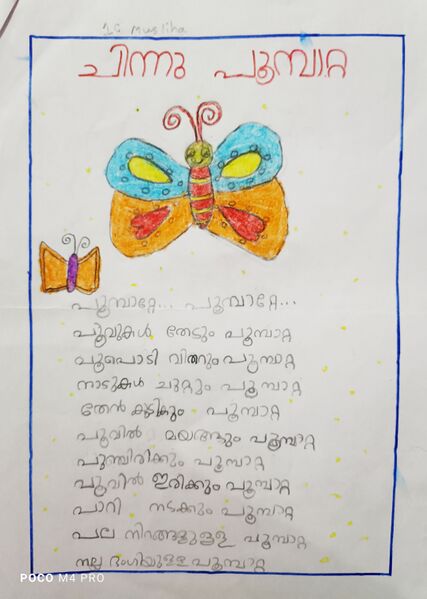 1C Musliha
ചിന്നു പൂമ്പാറ്റ
പൂമ്പാറ്റേ... പൂമ്പാറ്റേ...
പൂവുകൾ തേടും പൂമ്പാറ്റ
പൂപൊടി വിതറും പൂമ്പാറ്റ
നാടുകൾ ചുറ്റും പൂമ്പാറ്റ
തേൻ കുടികും പൂമ്പാറ്റ
പൂവിൽ മയങ്ങും പൂമ്പാറ്റ
പുഞ്ചിരിക്കും പൂമ്പാറ്റ
പൂവിൽ ഇരിക്കും പൂമ്പാറ്റ
പാറി നടക്കും പൂമ്പാറ്റ
പല നിറങ്ങളുള്ള പൂമ്പാറ്റ
നല്ല ഭംഗിയുള്ള പൂമ്പാറ്റ
POCO M4 PRO